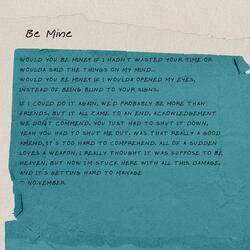 Be Mine
WOULD YOU BE MINE? IF I HADN'T WASTED YOUR TIME OR
WOULDA SAID THE THINGS ON MY MIND...
WOULD YOU BE MINE? IF I WOULDA OPENED MY EYES,
INSTEAD OF BEING BLIND TO YOUR SIGNS.
IF I COULD DO IT AGAIN, WE'D PROBABLY BE MORE THAN
FRIENDS; BUT IT ALL CAME TO AN END, ACKNOWLEDGEMENT
WE DON'T COMMEND. YOU JUST HAD TO SHUT IT DOWN,
YEAH YOU HAD TO SHUT ME OUT. WAS THAT REALLY A GOOD
AMEND, IT'S TOO HARD TO COMPREHEND. ALL OF A SUDDEN
LOVES A WEAPON, I REALLY THOUGHT IT WAS SUPPOSE TO BE
HEAVEN, BUT NOW I'M STUCK HERE WITH ALL THIS DAMAGE,
AND IT'S GETTING HARD TO MANAGE
~ NOVEMBER